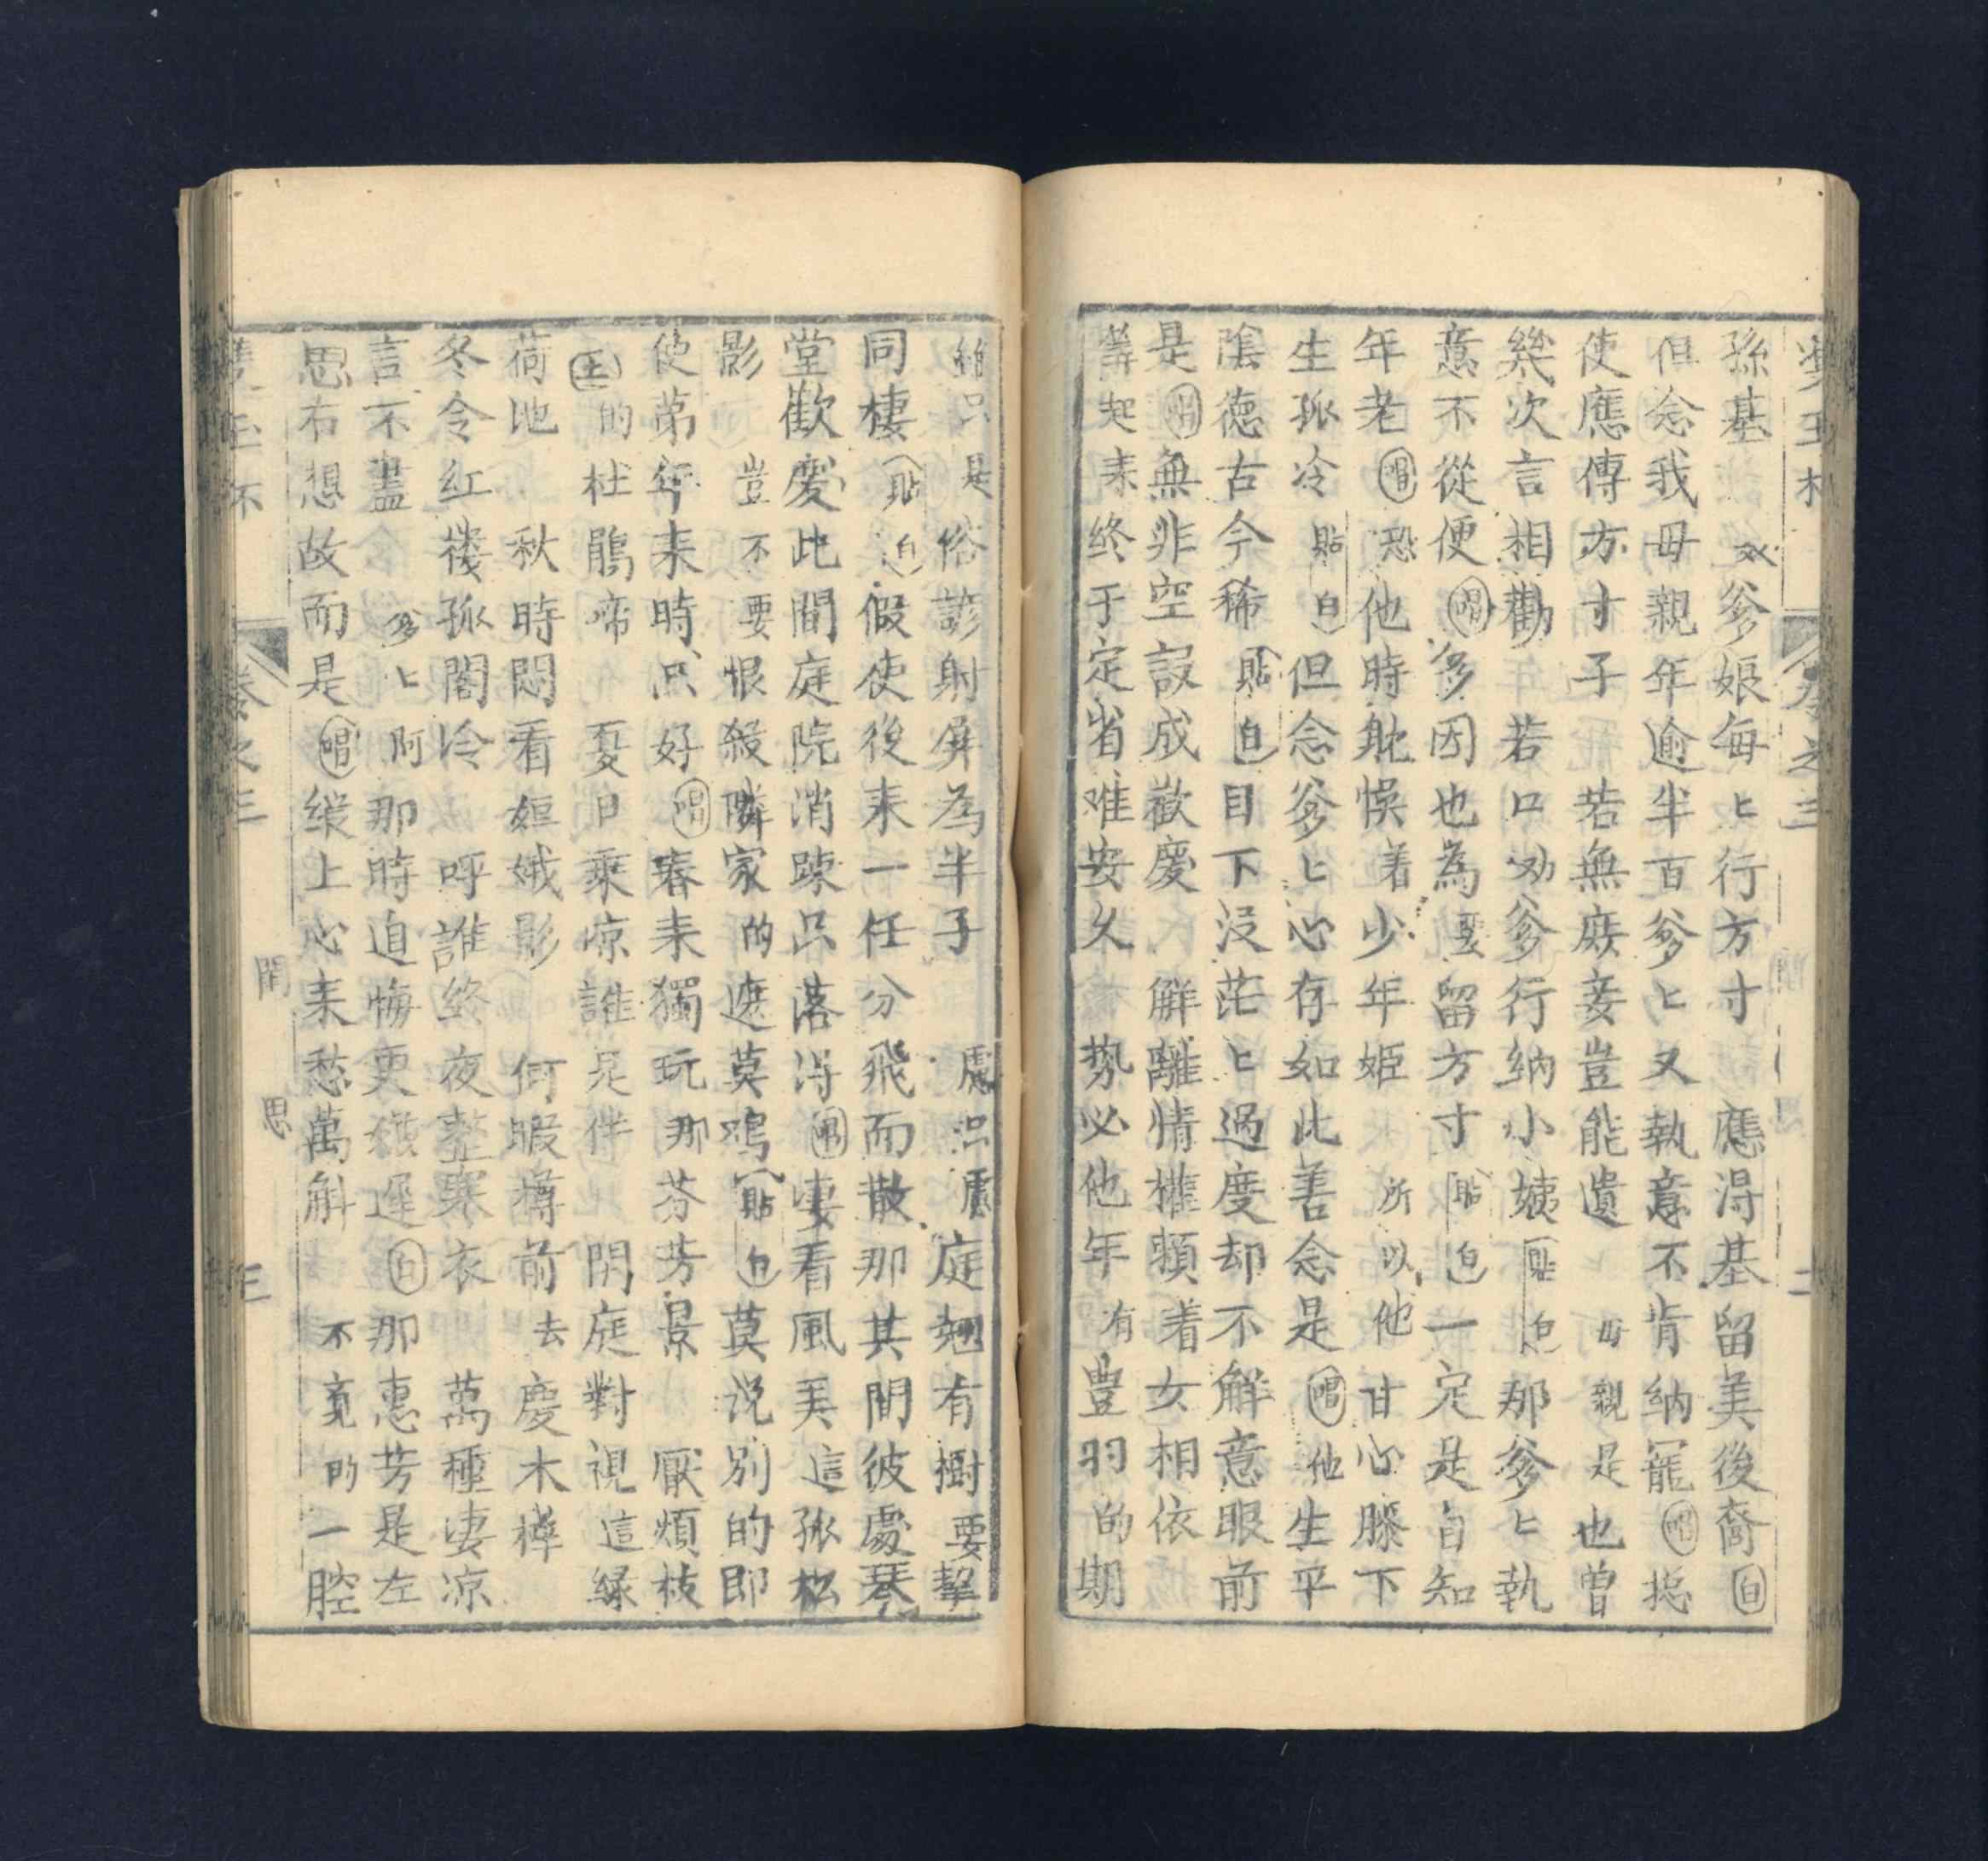 孫基 双爹娘每〻行方寸 應淂基留美後裔 白
但念我母親年逾半百爹〻又執意不肯納寵 唱
使應傳方寸子 若無庶妾豈能遺 母親是也曾
幾次言相勸 若口劝爹行納小姨 貼白 那爹〻執
意不從便 唱 多因也為 要留方寸 貼白 一定是自知
年老 唱 恐他時躭悞着少年姬 所以他甘心膝下
生孤冷 貼白 但念爹〻心存如此善念是 唱 他生平
陰德古今稀 貼白 目下没茫〻過度却不解意眼前
是 唱 無非空設成歡慶 解離情權頼着女相依
算起来终于定省难安久 势必他年有豊羽的期
雖只是俗諺射屏為半子 慮只慮庭翘有樹要擊
同棲 貼白 假使後来一任分飛而散那其間彼處琴
堂歡慶此間庭院消疎只落淂 唱 凄看風美這孤松
影 豈不要恨殺隣家的遮莫鳴 貼白 莫说别的即
使苐年来時只好 唱 春来獨玩那芬芳景 厭煩枝
上的杜鵑啼 夏日乗凉誰是伴 閑庭對視這緑
荷池 秋時悶看姮娥影 何暇樽前去慶木樨
冬令红樓孤閣冷 呼誰终夜整寒衣 萬種凄凉
言不盡 爹〻阿那時追悔更嫌遲 白 那惠芳是左
思右想故而是 唱 缎上心来愁萬斛 不竟的一腔
卷之三 閨思 三